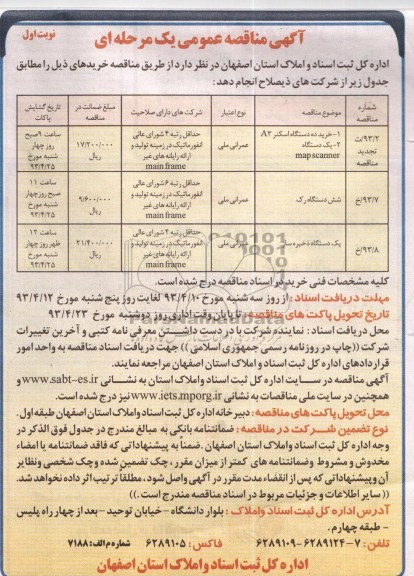 آگهی مناقصه عمومی یک مرحله ای
نوبت اول
اداره کل ثبت اسناد و املاک استان اصفهان در نظر دارد از طریق مناقصه خریدهای ذیل را مطابق
جدول زیر از شرکت های ذیصلاح انجام دهد:
شماره مناقصه | موضوع مناقصه | نوع اعتبار | شرکت های دارای صلاحیت | مبلغ ضمانت در مناقصه | تاریخ گشایش پاکات
۹۳/۲/ت تجدید مناقصه | ۱- خرید ده دستگاه اسکنر A۳ ۲- یک دستگاه map scanner | عمرانی ملی | حداقل رتبه ۴ شورای عالی انفورماتیک در زمینه تولید و ارائه رایانه های غیر main frame | ۱۷/۲۰۰/۰۰۰ ریال | ساعت ۹ صبح روز چهار شنبه مورخ ۹۳/۴/۲۵
۹۳/۷/خ | شش دستگاه رک | عمرانی ملی | حداقل رتبه ۶ شورای عالی انفورماتیک در زمینه تولید و ارائه رایانه های غیر main frame | ۹/۶۰۰/۰۰۰ ریال | ساعت ۱۱ صبح روز چهار شنبه مورخ ۹۳/۴/۲۵
۹۳/۸/خ | یک دستگاه ذخیره ساز | عمرانی ملی | حداقل رتبه ۴ شورای عالی انفورماتیک در زمینه تولید و ارائه رایانه های غیر main frame | ۲۱/۴۰۰/۰۰۰ ریال | ساعت ۱۲ ظهر روز چهار شنبه مورخ ۹۳/۴/۲۵
کلیه مشخصات فنی خرید در اسناد مناقصه درج شده است.
مهلت دریافت اسناد: از روز سه شنبه مورخ ۹۳/۴/۱۰ لغایت روز پنج شنبه مورخ ۹۳/۴/۱۲
تاریخ تحویل پاکت های مناقصه: تا پایان وقت اداری روز دوشنبه مورخ ۹۳/۴/۲۳
محل دریافت اسناد: نماینده شرکت با در دست داشتن معرفی نامه کتبی و آخرین تغییرات
شرکت ((چاپ در روزنامه رسمی جمهوری اسلامی)) جهت دریافت اسناد مناقصه به واحد امور
قراردادهای اداره کل ثبت اسناد و املاک استان اصفهان مراجعه نمایند.
آگهی مناقصه در سایت اداره کل ثبت اسناد واملاک استان به نشانی www.sabt-es.ir و
همچنین در سایت ملی مناقصات به نشانی www.iets.mporg.ir نیز درج شده است.
محل تحویل پاکت های مناقصه: دبیرخانه اداره کل ثبت اسناد واملاک استان اصفهان طبقه اول.
نوع تضمین شرکت در مناقصه: ضمانتنامه بانکی به مبالغ مندرج در جدول فوق الذکر در
وجه اداره کل ثبت اسناد واملاک استان اصفهان. ضمنا به پیشنهاداتی که فاقد ضمانتنامه یا امضاء
مخدوش و مشروط وضمانتنامه های کمتر از میزان مقرر، چک تضمین شده وچک شخصی ونظایر
آن وپیشنهاداتی که پس از انقضاء مدت مقرر در آگهی واصل شود، مطلقا ترتیب اثر داده نخواهد شد.
((سایر اطلاعات و جزئیات مربوط در اسناد مناقصه مندرج است.))
آدرس اداره کل ثبت اسناد واملاک: بلوار دانشگاه -خیابان توحید -بعد از چهار راه پلیس
- طبقه چهارم.
تلفن: ۷-۶۲۸۹۱۲۴-۶۲۸۹۱۰۹ فاکس: ۶۲۸۹۱۰۵ شماره م الف: ۷۱۸۸
اداره کل ثبت اسناد واملاک استان اصفهان